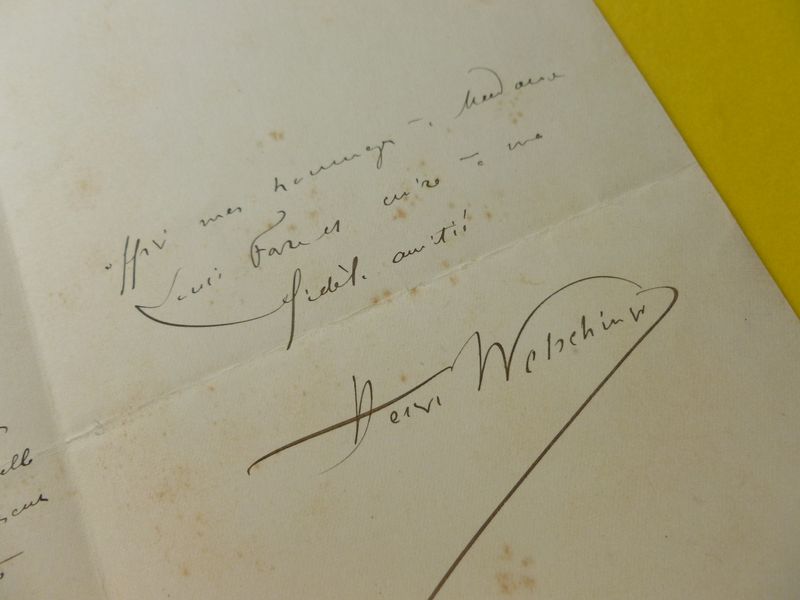 offrir mes hommages à Madame
Louis Farges et croire à ma
fidèle amitié
Henri Welschinger
elle